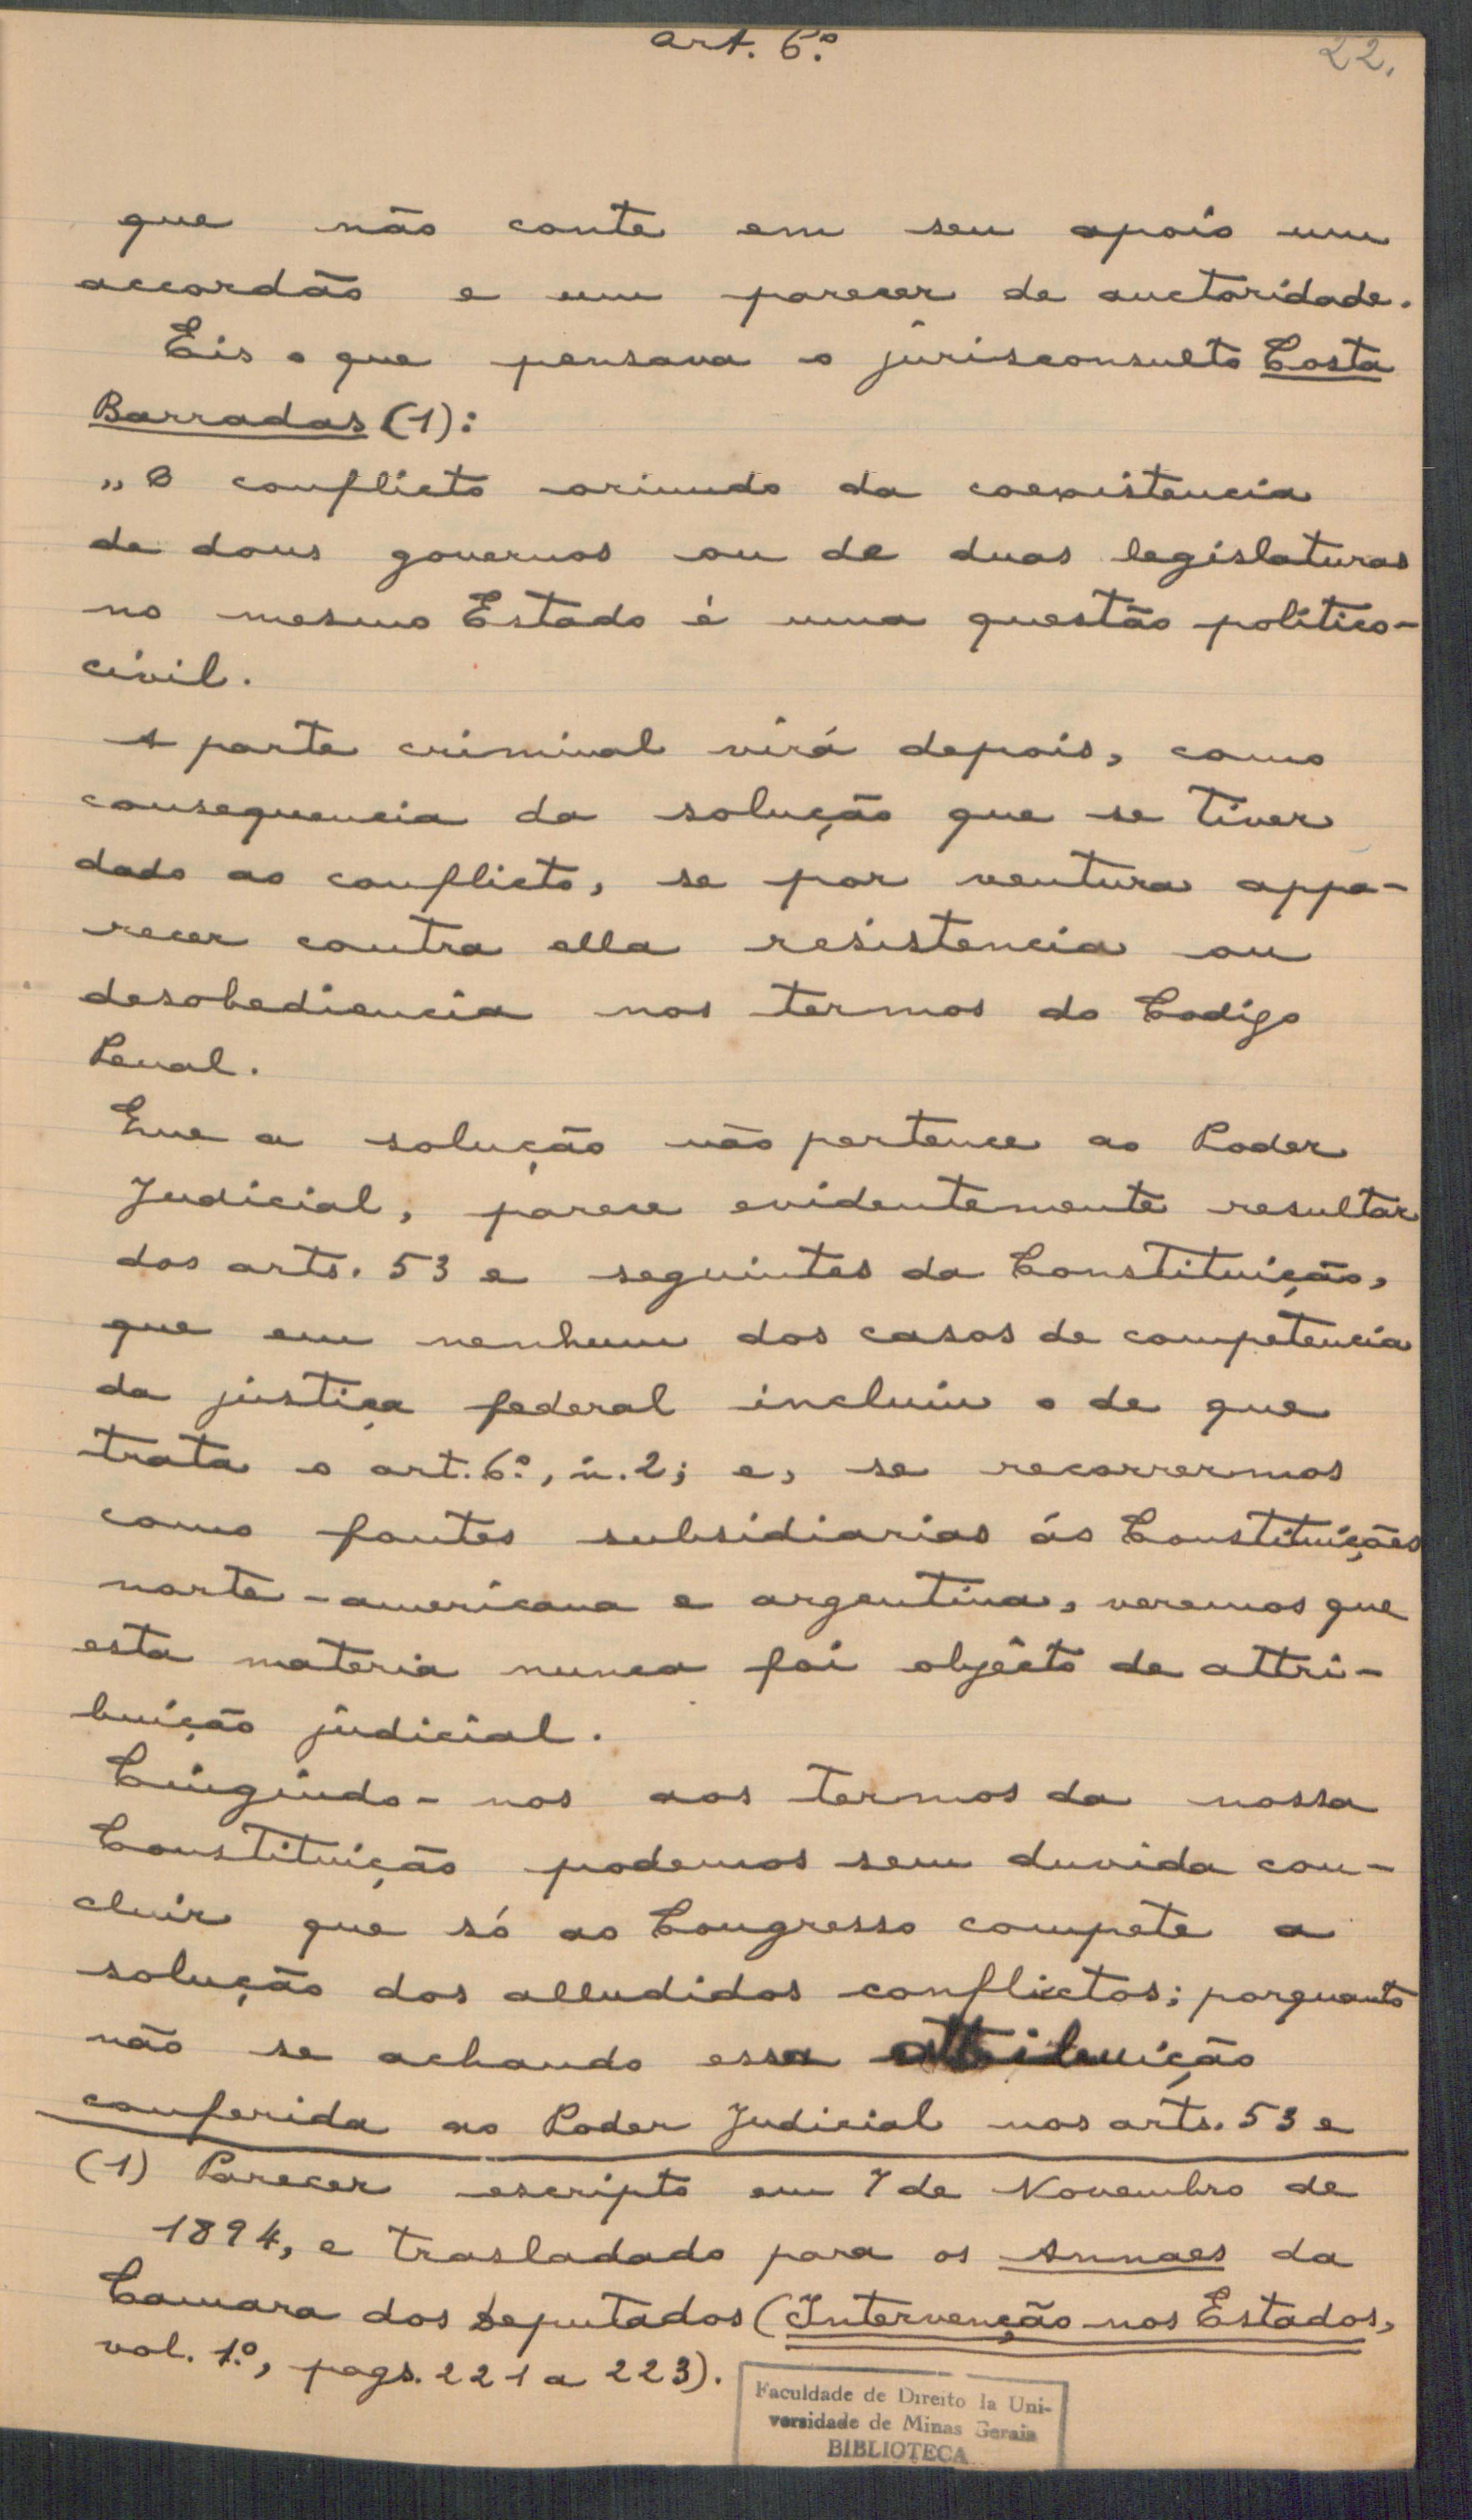 art. 6º
22.
que não conte em seu apoio um
accordão e um parecer de auctoridade.
Eis o que pensava o jurisconsulto Costa
Barradas (1):
„O conflicto oriundo da coexistencia
de dous governos ou de duas legislaturas
no mesmo Estado é uma questão politico-
civil.
A parte criminal virá depois, como
consequencia da solução que se tiver
dado ao conflicto, se por ventura appa-
recer contra ella resistencia ou
desobediencia nos termos do Codigo
Penal.
Que a solução não pertence ao Poder
Judicial, parece evidentemente resultar
dos arts. 53 e seguintes da Constituição,
que em nenhum dos casos de competencia
da justiça federal incluiu o de que
trata o art. 6º, n. 2; e, se recorrermos
como fontes subsidiarias ás Constituições
norte-americana e argentina, veremos que
esta materia nunca foi objecto de attri-
buição judicial.
Cingindo-nos aos termos da nossa
Constituição podemos sem duvida con-
cluir que só ao Congresso compete a
solução dos alludidos conflictos; porquanto
não se achando essa attribuição
conferida ao Poder Judicial nos arts. 53 e
(1) Parecer escripto em 7 de Novembro de
1894, e trasladado para os Annaes da
Camara dos Deputados (Intervenção nos Estados,
vol. 1º, pags. 221 a 223).
Faculdade de Direito da Uni-
versidade de Minas Gerais
BIBLIOTECA